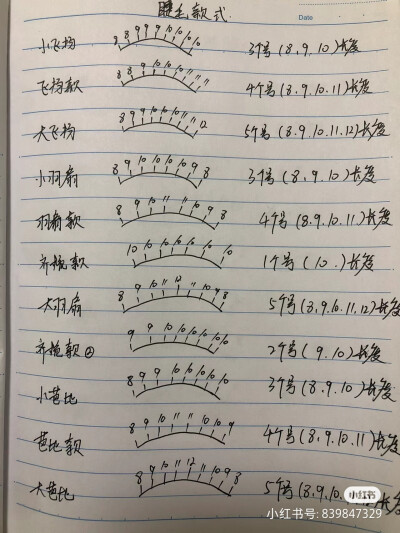 睫毛款式
Date
小飞扬 8 8 9 9 9 10 10 10 10 3个号(8.9.10)长度
飞扬款 8 8 9 9 10 10 10 11 11 4个号(8.9.10.11)长度
大飞扬 8 9 9 10 10 11 11 12 5个号(8.9.10.11.12)长度
小羽扇 8 9 10 10 10 10 9 8 3个号(8.9.10)长度
羽扇款 8 9 10 11 11 10 9 8 4个号(8.9.10.11)长度
齐梳款 10 10 10 10 10 10 10 10 1个号(10.)长度
大羽扇 8 9 10 11 12 11 10 9 8 5个号(8.9.10.11.12)长度
齐梳款② 9 9 10 10 10 10 10 10 2个号(9.10)长度
小芭比 8 9 9 10 10 10 10 10 3个号(8.9.10)长度
芭比款 8 9 10 11 11 10 10 9 4个号(8.9.10.11)长度
大芭比 8 9 10 11 12 11 10 9 8 5个号(8.9.10.长度
小红书
小红书号: 839847329